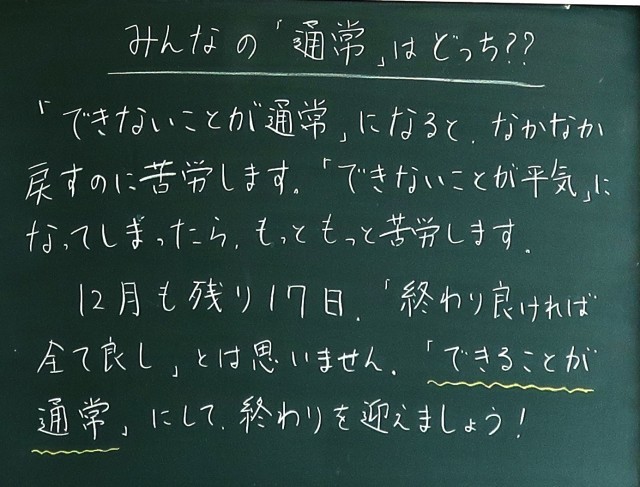 みんなの「通常」はどっち??
「できないことが通常」になると、なかなか
戻すのに苦労します。「できないことが平気」に
なってしまったら、もっともっと苦労します。
12月も残り17日、「終わり良ければ
全て良し」とは思いません。「できることが
通常」にして、終わりを迎えましょう!